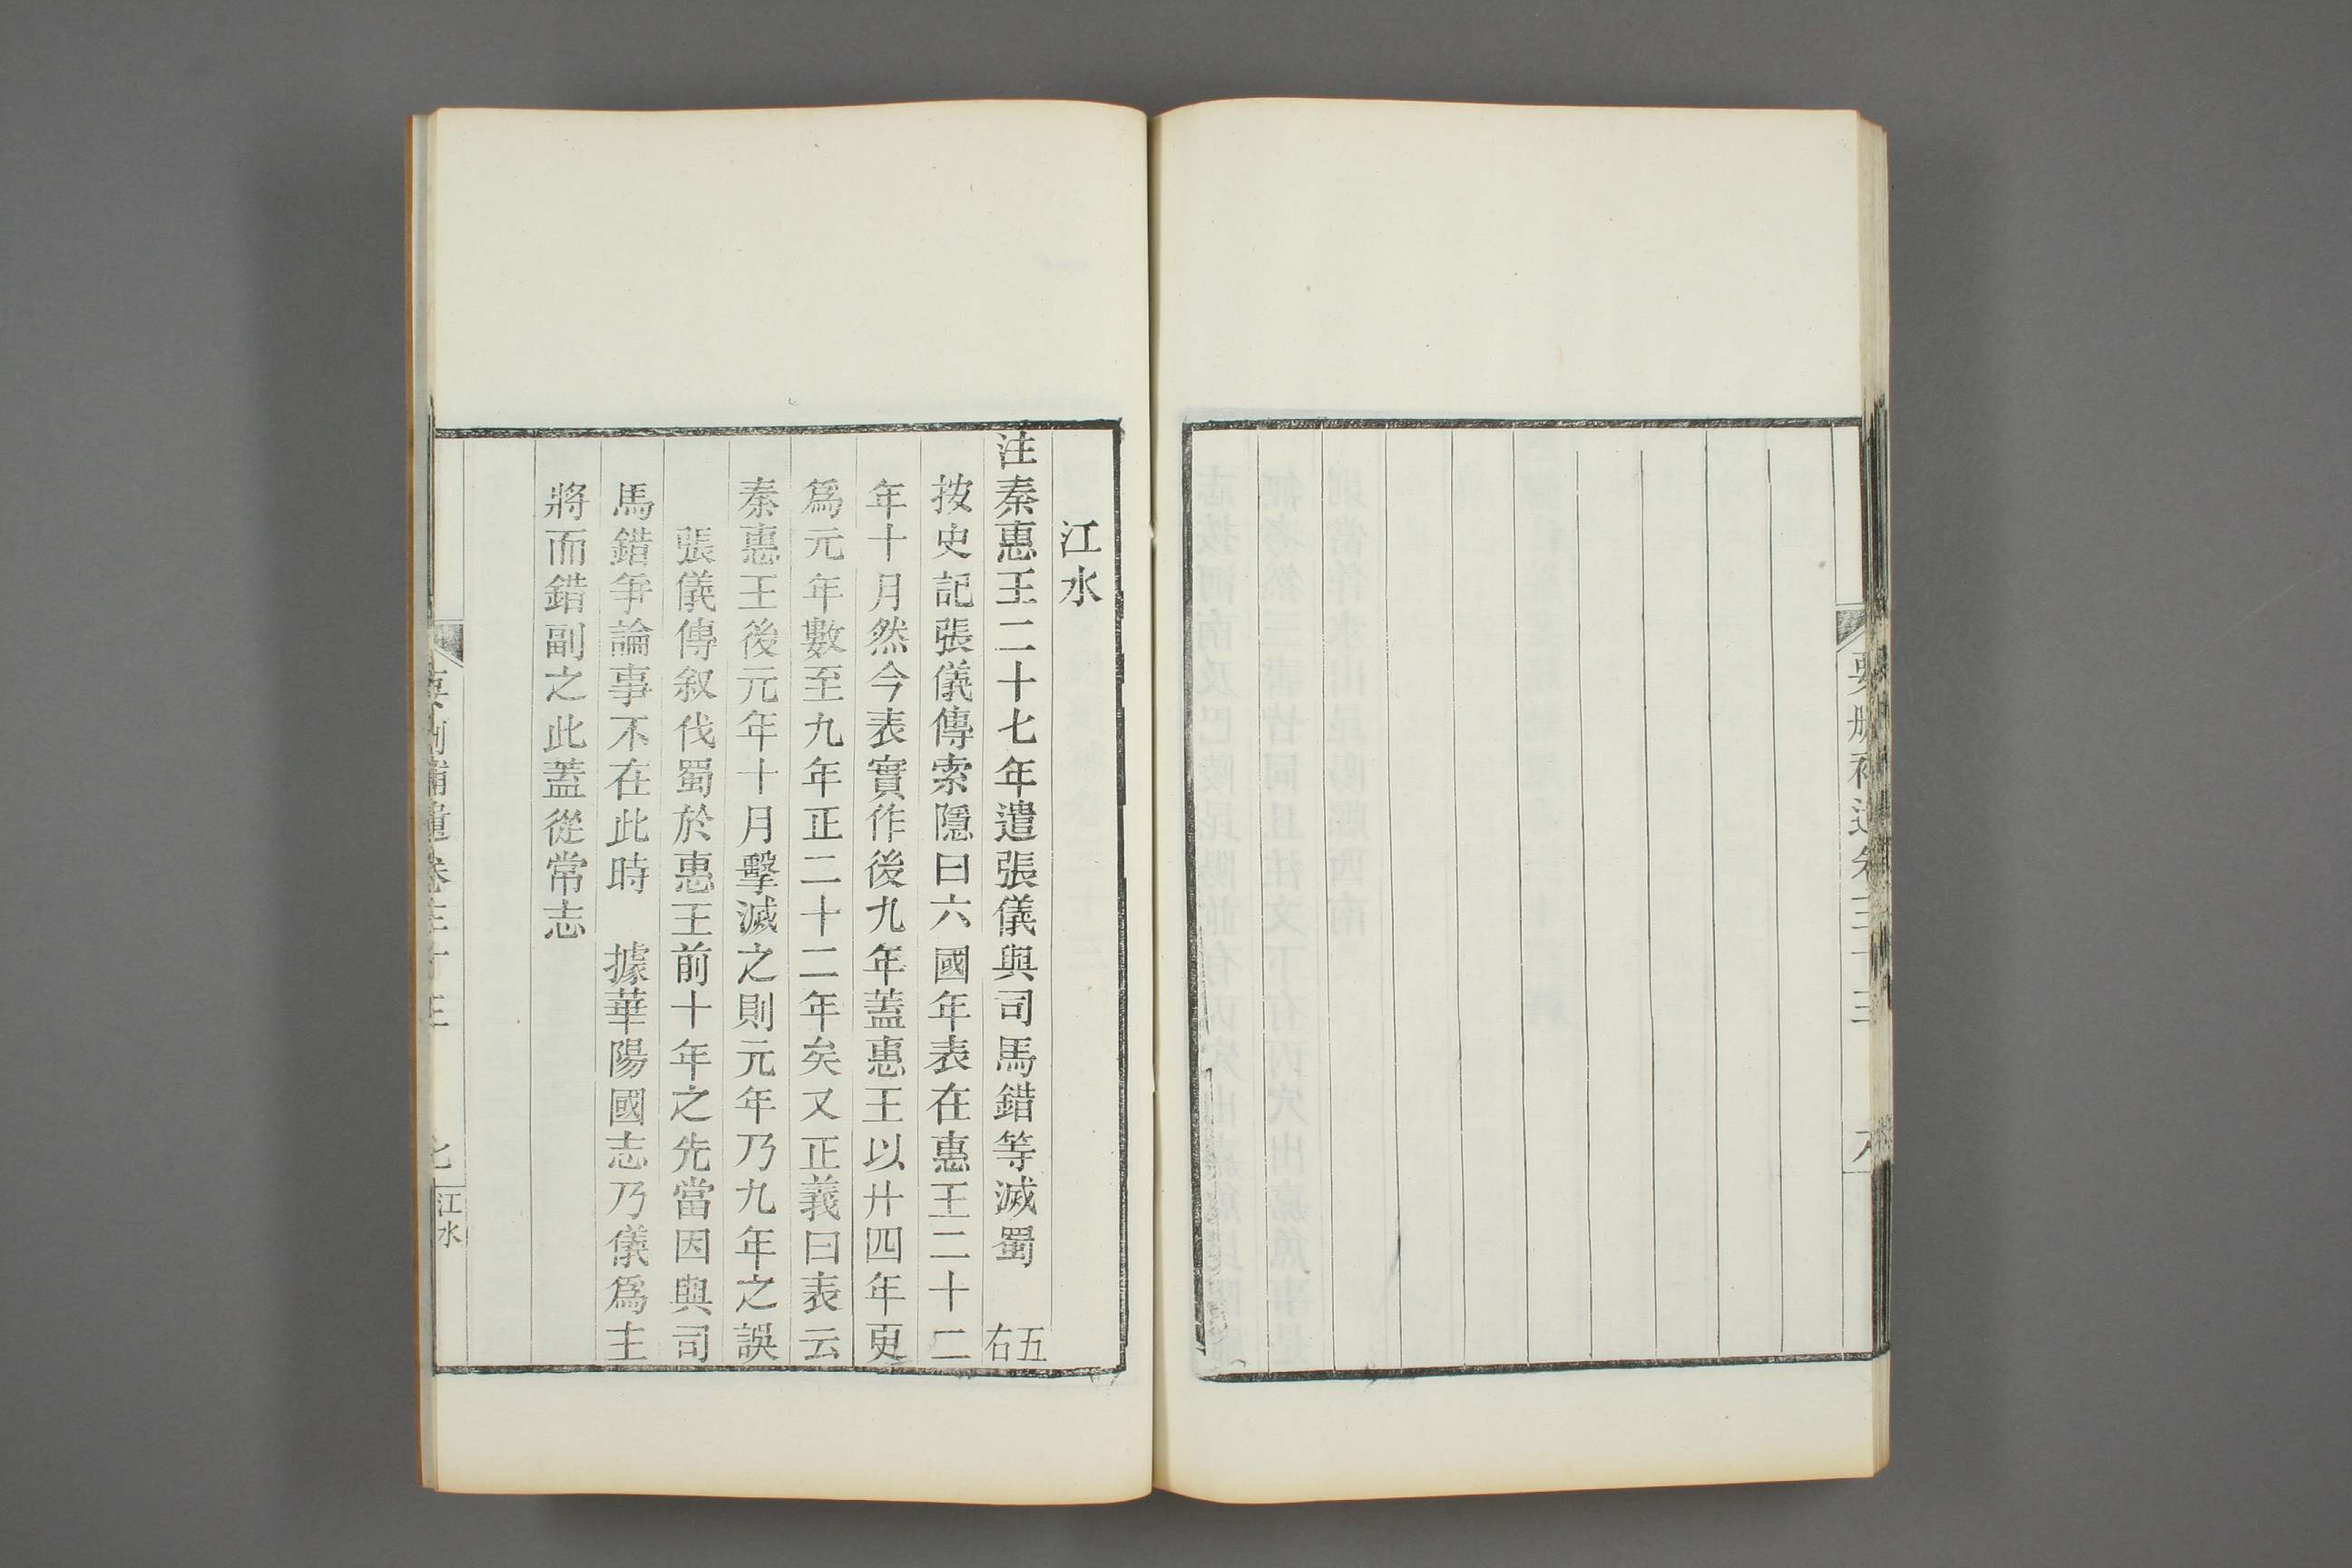 江水
注秦惠王二十七年遣張儀與司馬錯等滅蜀　五右
按史記張儀傳索隱曰六國年表在惠王二十二
年十月然今表實作後九年蓋惠王以廿四年更
爲元年數至九年正二十二年矣又正義曰表云
秦惠王後元年十月擊滅之則元年乃九年之誤
張儀傳叙伐蜀於惠王前十年之先當因與司
馬錯爭論事不在此時　據華陽國志乃儀爲主
將而錯副之此蓋從常志
要刪補遺卷三十三
七
江水